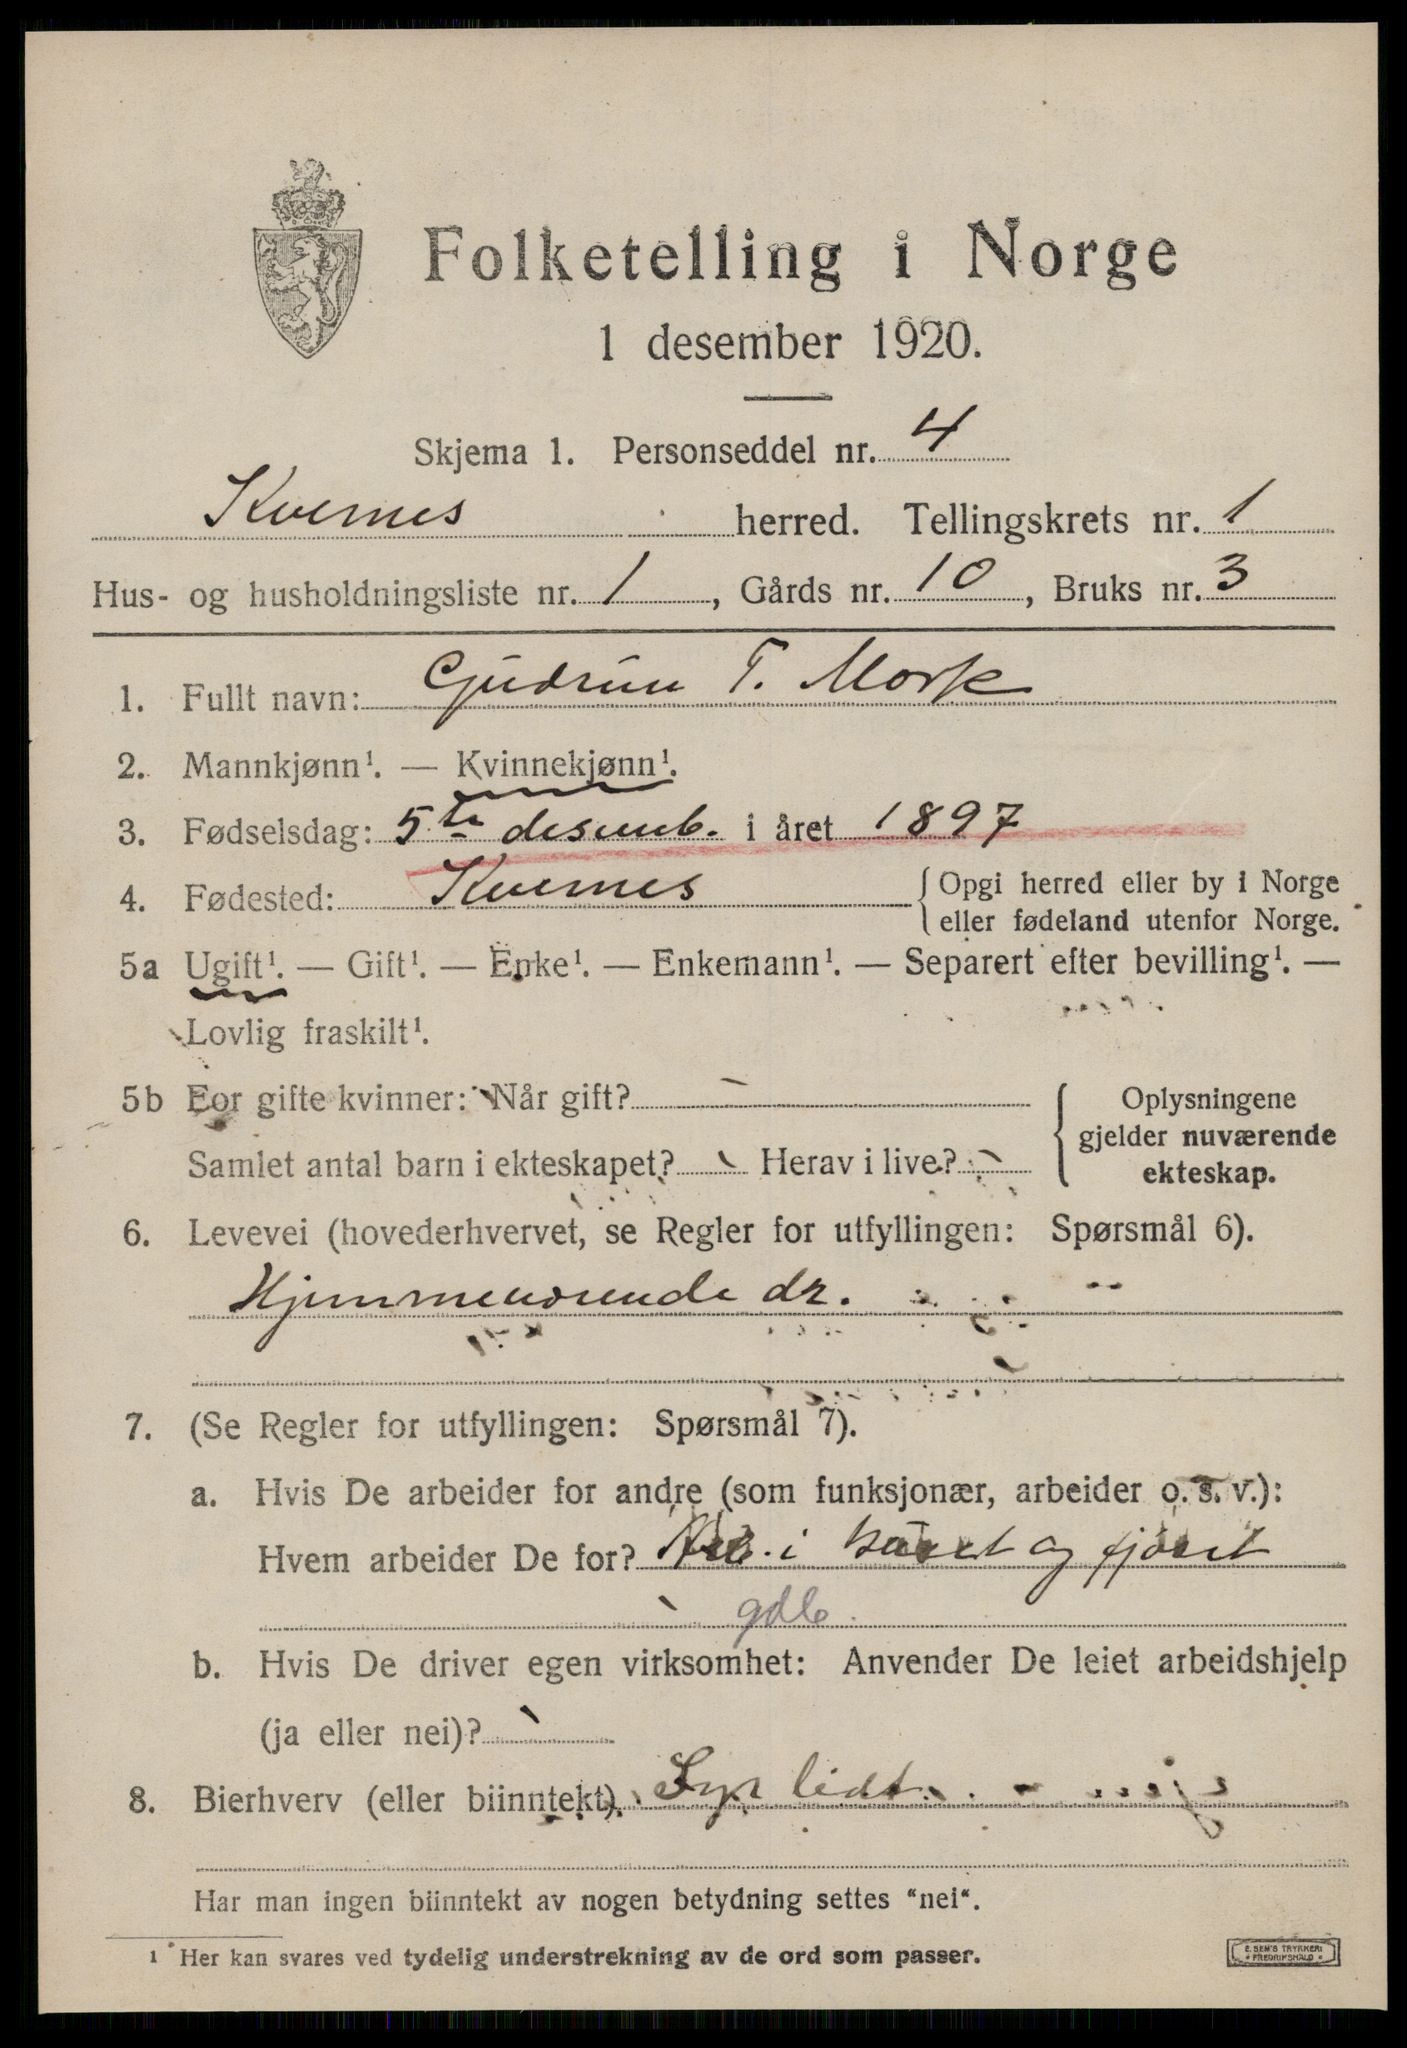 Folketelling i Norge
1 desember 1920.
Skjema 1. Personseddel nr. 4
Kvernes herred. Tellingskrets nr. 1
Hus- og husholdningsliste nr. 1, Gårds nr. 10, Bruks nr. 3
1. Fullt navn: Gudrun T. Mork
2. Mannkjønn¹. — Kvinnekjønn¹.
3. Fødselsdag: 5te desemb. i året 1897
4. Fødested: Kvernes
Opgi herred eller by i Norge
eller fødeland utenfor Norge.
5a Ugift¹. — Gift¹. — Enke¹. — Enkemann¹. — Separert efter bevilling¹. —
Lovlig fraskilt¹.
5b For gifte kvinner: Når gift?
Samlet antal barn i ekteskapet? Herav i live?
Oplysningene
gjelder nuværende
ekteskap.
6. Levevei (hovederhvervet, se Regler for utfyllingen: Spørsmål 6).
Hjemmeværende dr.
7. (Se Regler for utfyllingen: Spørsmål 7).
a. Hvis De arbeider for andre (som funksjonær, arbeider o. s. v.):
Hvem arbeider De for? i huset og fjøset
gdb.
b. Hvis De driver egen virksomhet: Anvender De leiet arbeidshjelp
(ja eller nei)?
8. Bierhverv (eller biinntekt). Syr lidt
Har man ingen biinntekt av nogen betydning settes "nei".
¹ Her kan svares ved tydelig understrekning av de ord som passer.
E. SEM'S TRYKKERI
* FREDRIKSHALD *